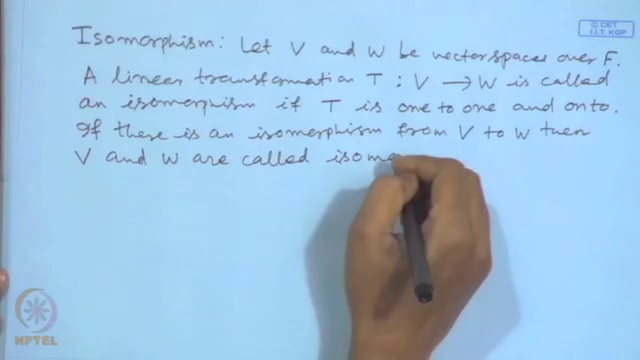 © CET
I.I.T. KGP
Isomorphism: Let V and W be vector spaces over F.
A linear transformation T : V → W is called
an isomorphism if T is one to one and onto.
If there is an isomorphism from V to W then
V and W are called isomo
NPTEL